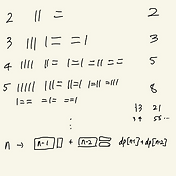 2 || = 2
3 ||| |= =| 3
4 |||| ||= |=| =|| == 5
5 ||||| |||= ||=| |=|| =||| 8
|== =|= ==|
13 21
34 55...
⋮
n → n-1 | + n-2 = dp[n-1]+dp[n-2]